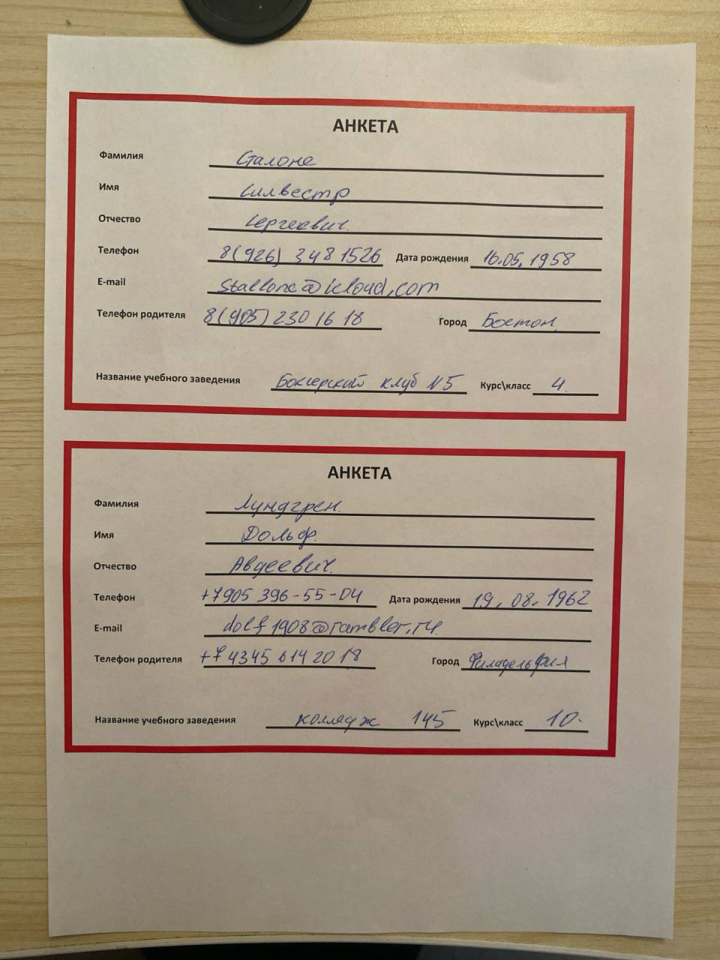 АНКЕТА
Фамилия Сталоне
Имя Силвестр
Отчество Сергеевич
Телефон 8(926) 348 1526 Дата рождения 16.05.1958
E-mail stallone@icloud.com
Телефон родителя 8(905) 230 16 18 Город Бостон
Название учебного заведения Боксерский клуб №5 Курс\класс 4.
АНКЕТА
Фамилия Лундгрен.
Имя Дольф.
Отчество Авдеевич.
Телефон +7905 396-55-04 Дата рождения 19.08.1962
E-mail dolf1908@rambler.ru
Телефон родителя +7 4345 614 20 18 Город Филадельфия
Название учебного заведения колледж 145 Курс\класс 10.